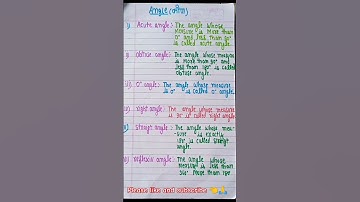 Angle (कोण)
i) Acute angle:- The angle whose
measure is more than
0° and less than 90°
is called acute angle.
ii) obtuse angle:- The angle whose measure
is more than 90° and
less than 180° is called
obtuse angle.
iii) 0° angle:- The angle whose measure
is 0° is called 0° angle.
right angle:- The angle whose measure
is 90° is called right angle.
straight angle:- The angle whose mea-
is exactly
180° is called straight
angle.
reflexive angle:- The angle whose
measure is less than
360° more than 180
Please like and subscribe